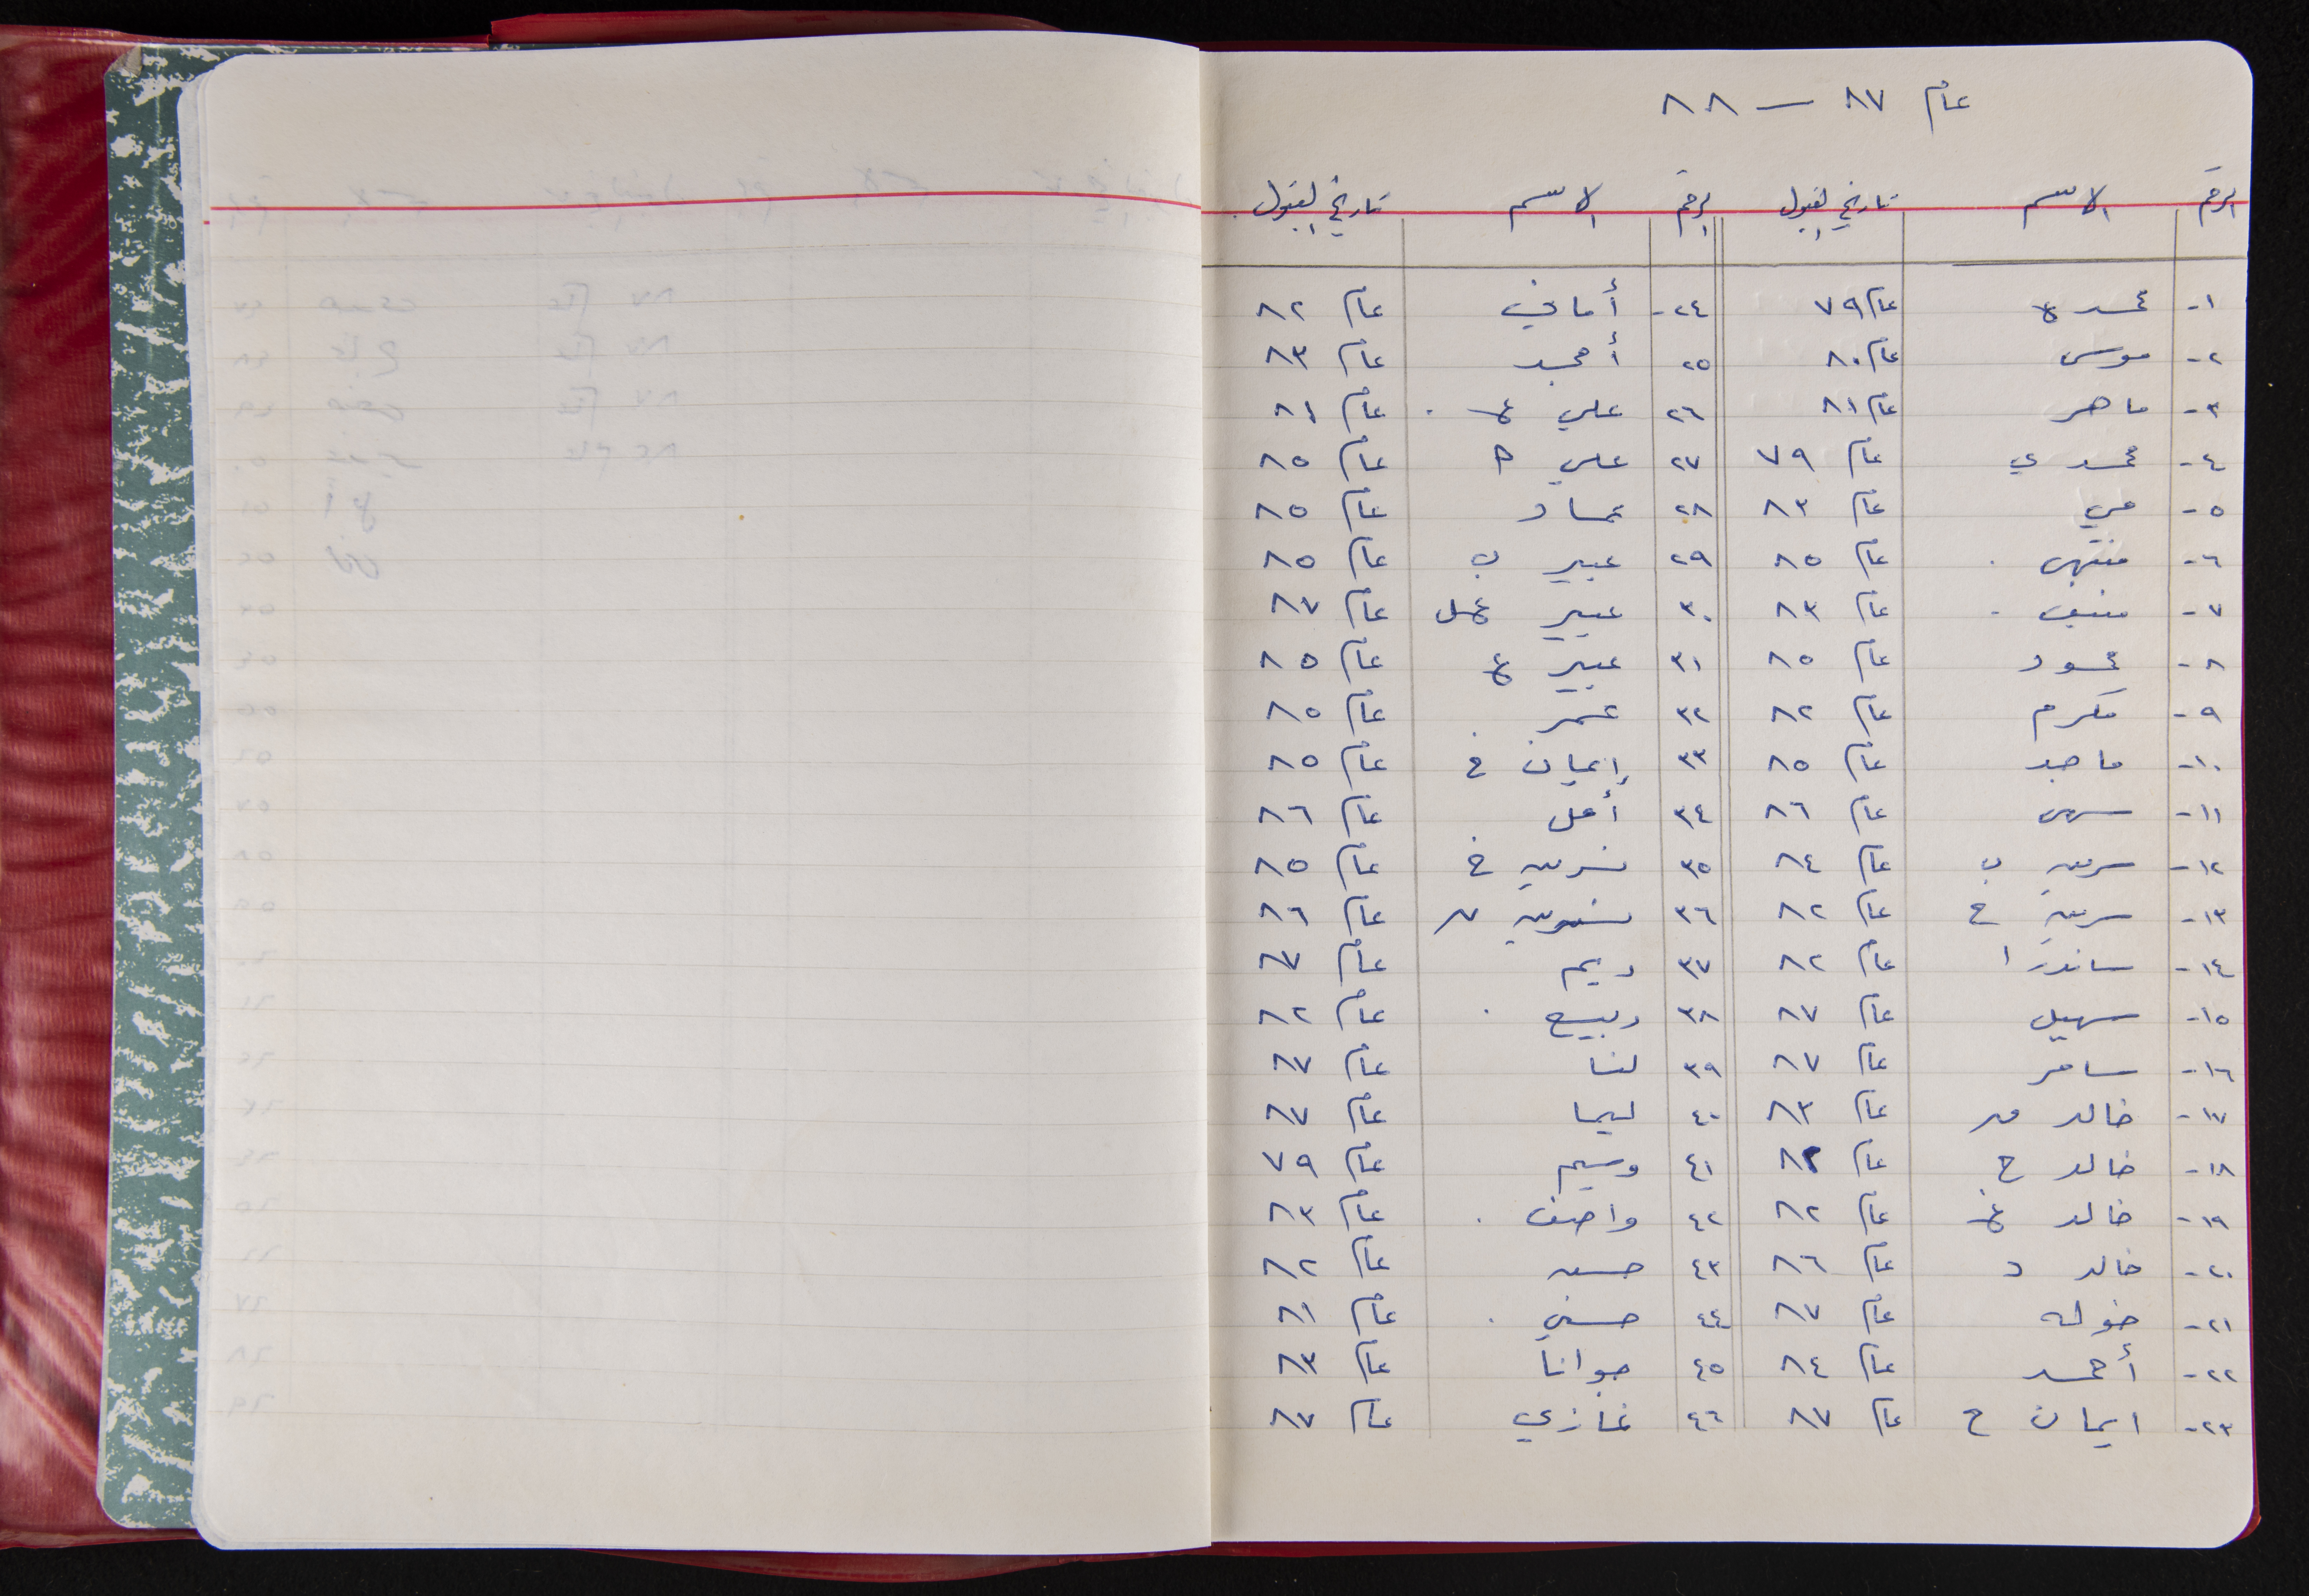 عام ٨٧ — ٨٨
الرقم الاسم تاريخ القبول الرقم الاسم تاريخ القبول
١- محمد ه عام ٧٩ ٢٤- أماني عام ٨٢
٢- موسى عام ٨٠ ٢٥ أمجد عام ٨٣
٣- ماهر عام ٨١ ٢٦ علي ع عام ٨١
٤- محمد ي عام ٧٩ ٢٧ علي ط عام ٨٥
٥- مي عام ٨٣ ٢٨ عماد عام ٨٥
٦- منتهى عام ٨٥ ٢٩ عبير ب عام ٨٥
٧- منيف عام ٨٣ ٣٠ عبير عام ٨٧
٨- محمود عام ٨٥ ٣١ عبير ع عام ٨٥
٩- مكرم عام ٨٢ ٣٢ عمر عام ٨٥
١٠- ماجد عام ٨٥ ٣٣ إيمان خ عام ٨٥
١١- سهى عام ٨٦ ٣٤ أمل عام ٨٦
١٢- سرين ب عام ٨٤ ٣٥ نسرين خ عام ٨٥
١٣- سرين ح عام ٨٢ ٣٦ نسرين عام ٨٦
١٤- ساندرا عام ٨٢ ٣٧ ريم عام ٨٧
١٥- سهيل عام ٨٧ ٣٨ ربيع عام ٨٢
١٦- سامر عام ٨٧ ٣٩ لنا عام ٨٧
١٧- خالد عام ٨٣ ٤٠ ليما عام ٨٧
١٨- خالد ج عام ٤١ وسيم عام ٧٩
١٩- خالد عام ٨٢ ٤٢ واصف عام ٨٣
٢٠- خالد د عام ٨٦ ٤٣ حسن عام ٨٢
٢١- خوله عام ٨٧ ٤٤ حسني عام ٨١
٢٢- أحمد عام ٨٤ ٤٥ جوانا عام ٨٣
٢٣- ايمان ح عام ٨٧ ٤٦ غازي عام ٨٧